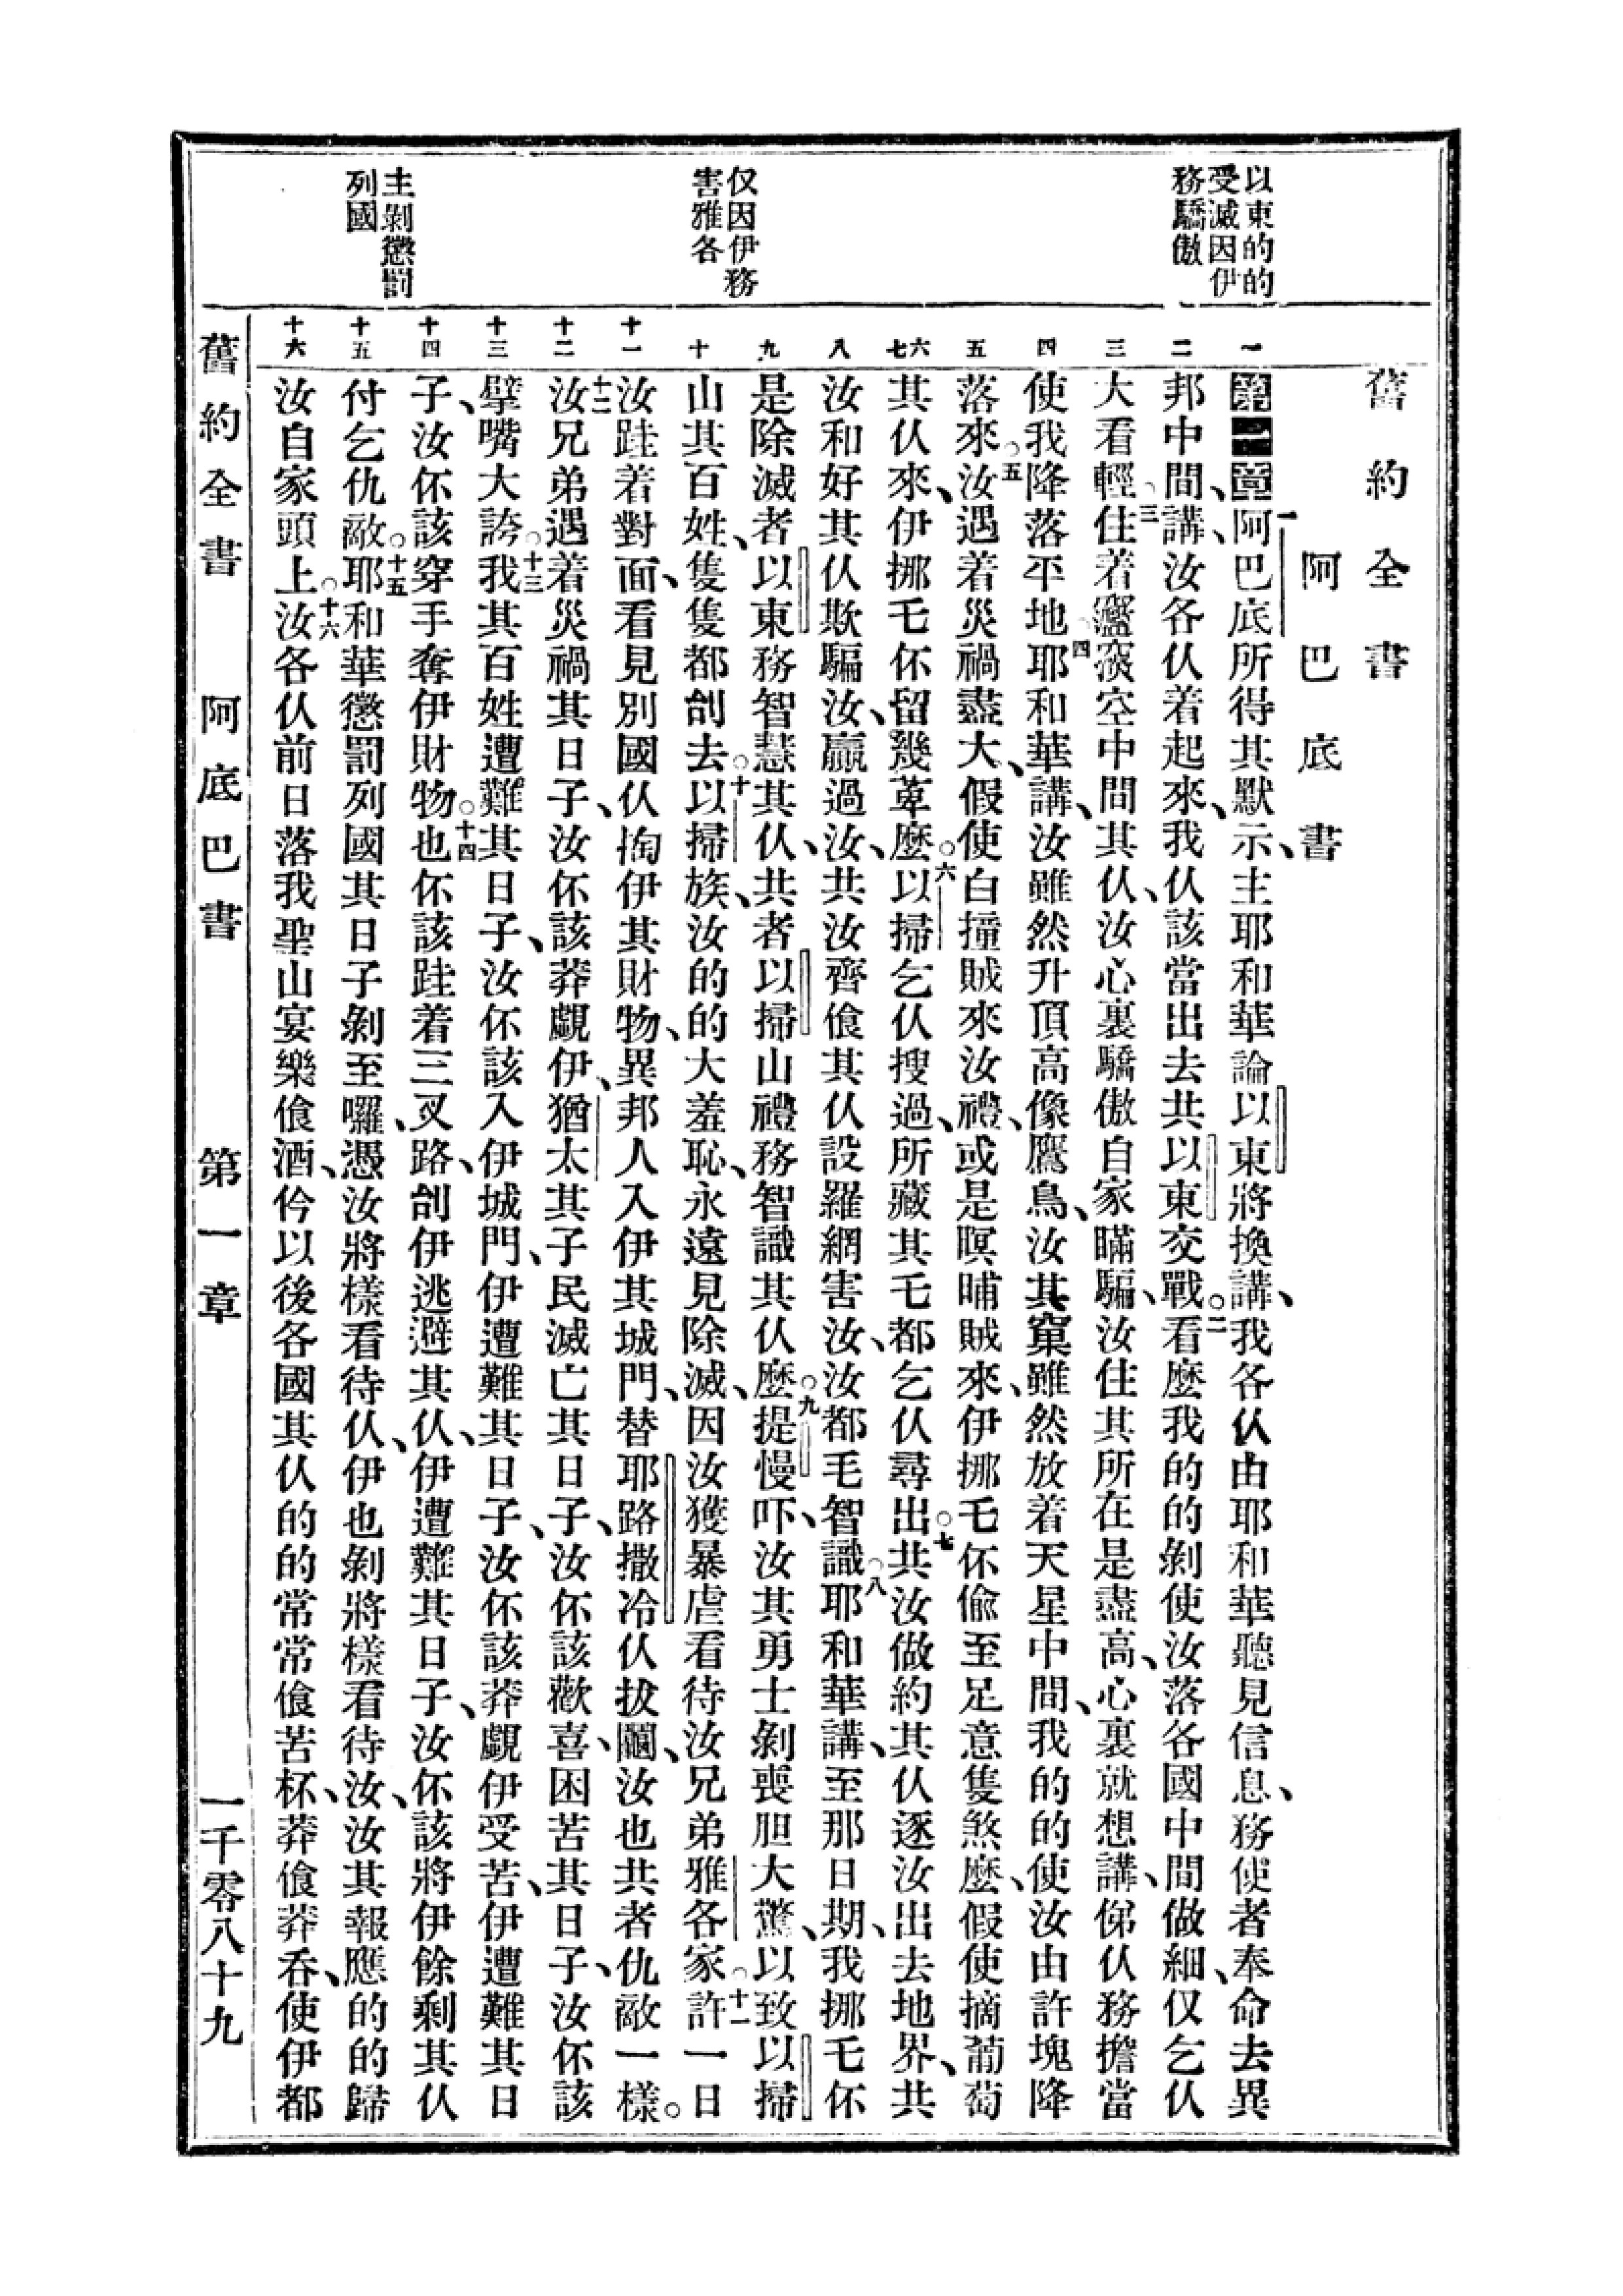 舊約全書
阿巴底書
以東的的
受滅因伊
務驕傲
仅因伊務
害雅各
主剝懲罰
列國
一 二 三 四 五 六 七 八 九 十 十一 十二 十三 十四 十五 十六
第一章 一阿巴底所得其默示、主耶和華論以東將換講、我各仫由耶和華聽見信息、務使者奉命去異
邦中間、講、汝各仫着起來、我仫該當出去共以東交戰。○二看麼我的的剝使汝落各國中間做細、仅乞仫
大看輕○三住着空中間其仫、汝心裏驕傲自家瞞騙、汝住其所在是盡高、心裏就想講、俤仫務擔當
使我降落平地○四耶和華講、汝雖然升頂高像鷹鳥、汝其窠雖然放着天星中間、我的的使汝由許塊降
落來○五汝遇着災禍盡大、假使白撞賊來汝禮、或是暝晡賊來、伊挪毛伓偷至足意隻煞麼、假使摘葡萄
其仫來、伊挪毛伓留幾萆麼○六以掃乞仫搜過、所藏其乇都乞仫尋出○七共汝做約其仫逐汝出去地界、共
汝和好其仫欺騙汝、贏過汝、共汝齊飡其仫設羅網害汝、汝都毛智識○八耶和華講、至那日期、我挪毛伓
是除滅者以東務智慧其仫、共者以掃山禮務智識其仫麼○九提慢吓、汝其勇士剝喪胆大驚、以致以掃
山其百姓、隻隻都刣去○十以掃族、汝的的大羞恥、永遠見除滅、因汝獲暴虐看待汝兄弟雅各家○十一許一日
汝跬着對面、看見別國仫掏伊其財物、異邦人入伊其城門、替耶路撒冷仫拔鬮、汝也共者仇敵一樣。
十二汝兄弟遇着災禍其日子、汝伓該莽覷伊、猶太其子民滅亡其日子、汝伓該歡喜、困苦其日子、汝伓該
擘嘴大誇○十三我其百姓遭難其日子、汝伓該入伊城門、伊遭難其日子、汝伓該莽覷伊受苦、伊遭難其日
子、汝伓該穿手奪伊財物○十四也伓該跬着三叉路、刣伊逃避其仫、伊遭難其日子、汝伓該將伊餘剩其仫
付乞仇敵○十五耶和華懲罰列國其日子剝至囉、憑汝將樣看待仫、伊也剝將樣看待汝、汝其報應的的歸
汝自家頭上○十六汝各仫前日落我聖山宴樂飡酒、伶以後各國其仫的的常常飡苦杯、莽飡莽吞、使伊都
舊約全書 阿底巴書 第一章 一千零八十九